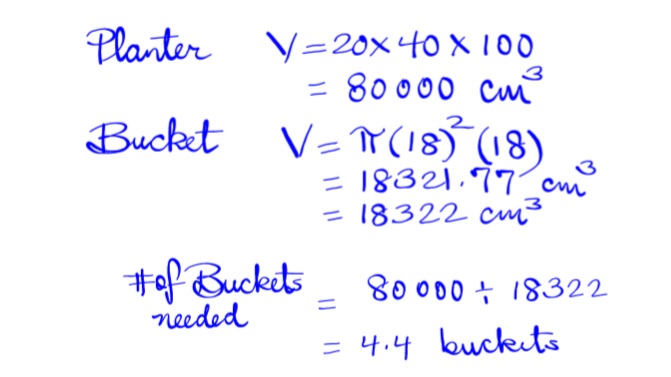 Planter V = 20 x 40 x 100
= 80000 cm³
Bucket V = π(18)²(18)
= 18321.77 cm³
= 18322 cm³
# of Buckets needed = 80000 ÷ 18322
= 4.4 buckets